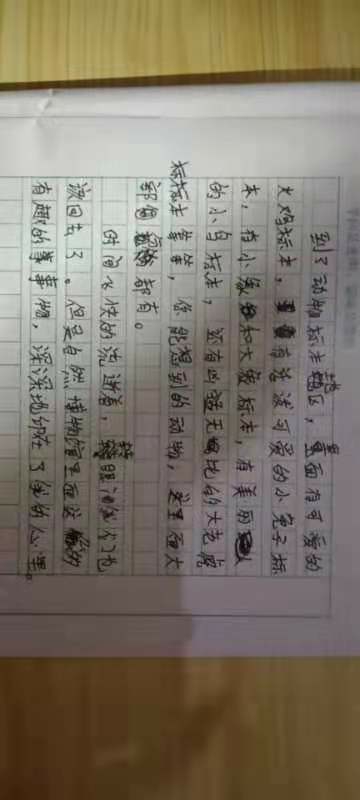 到了动物标本展区，里面有可爱的
火鸡标本，有活泼可爱的小兔子标
本，有小和大标本，有美丽
的小鸟标本，还有凶猛无比的大老虎
标本等等，你能想到的动物，这里面大
部都有。
时间飞快的流逝着，转眼间我们也
该回去了。但是自然博物馆里面这
有趣的事物，深深地印在了我的心里。